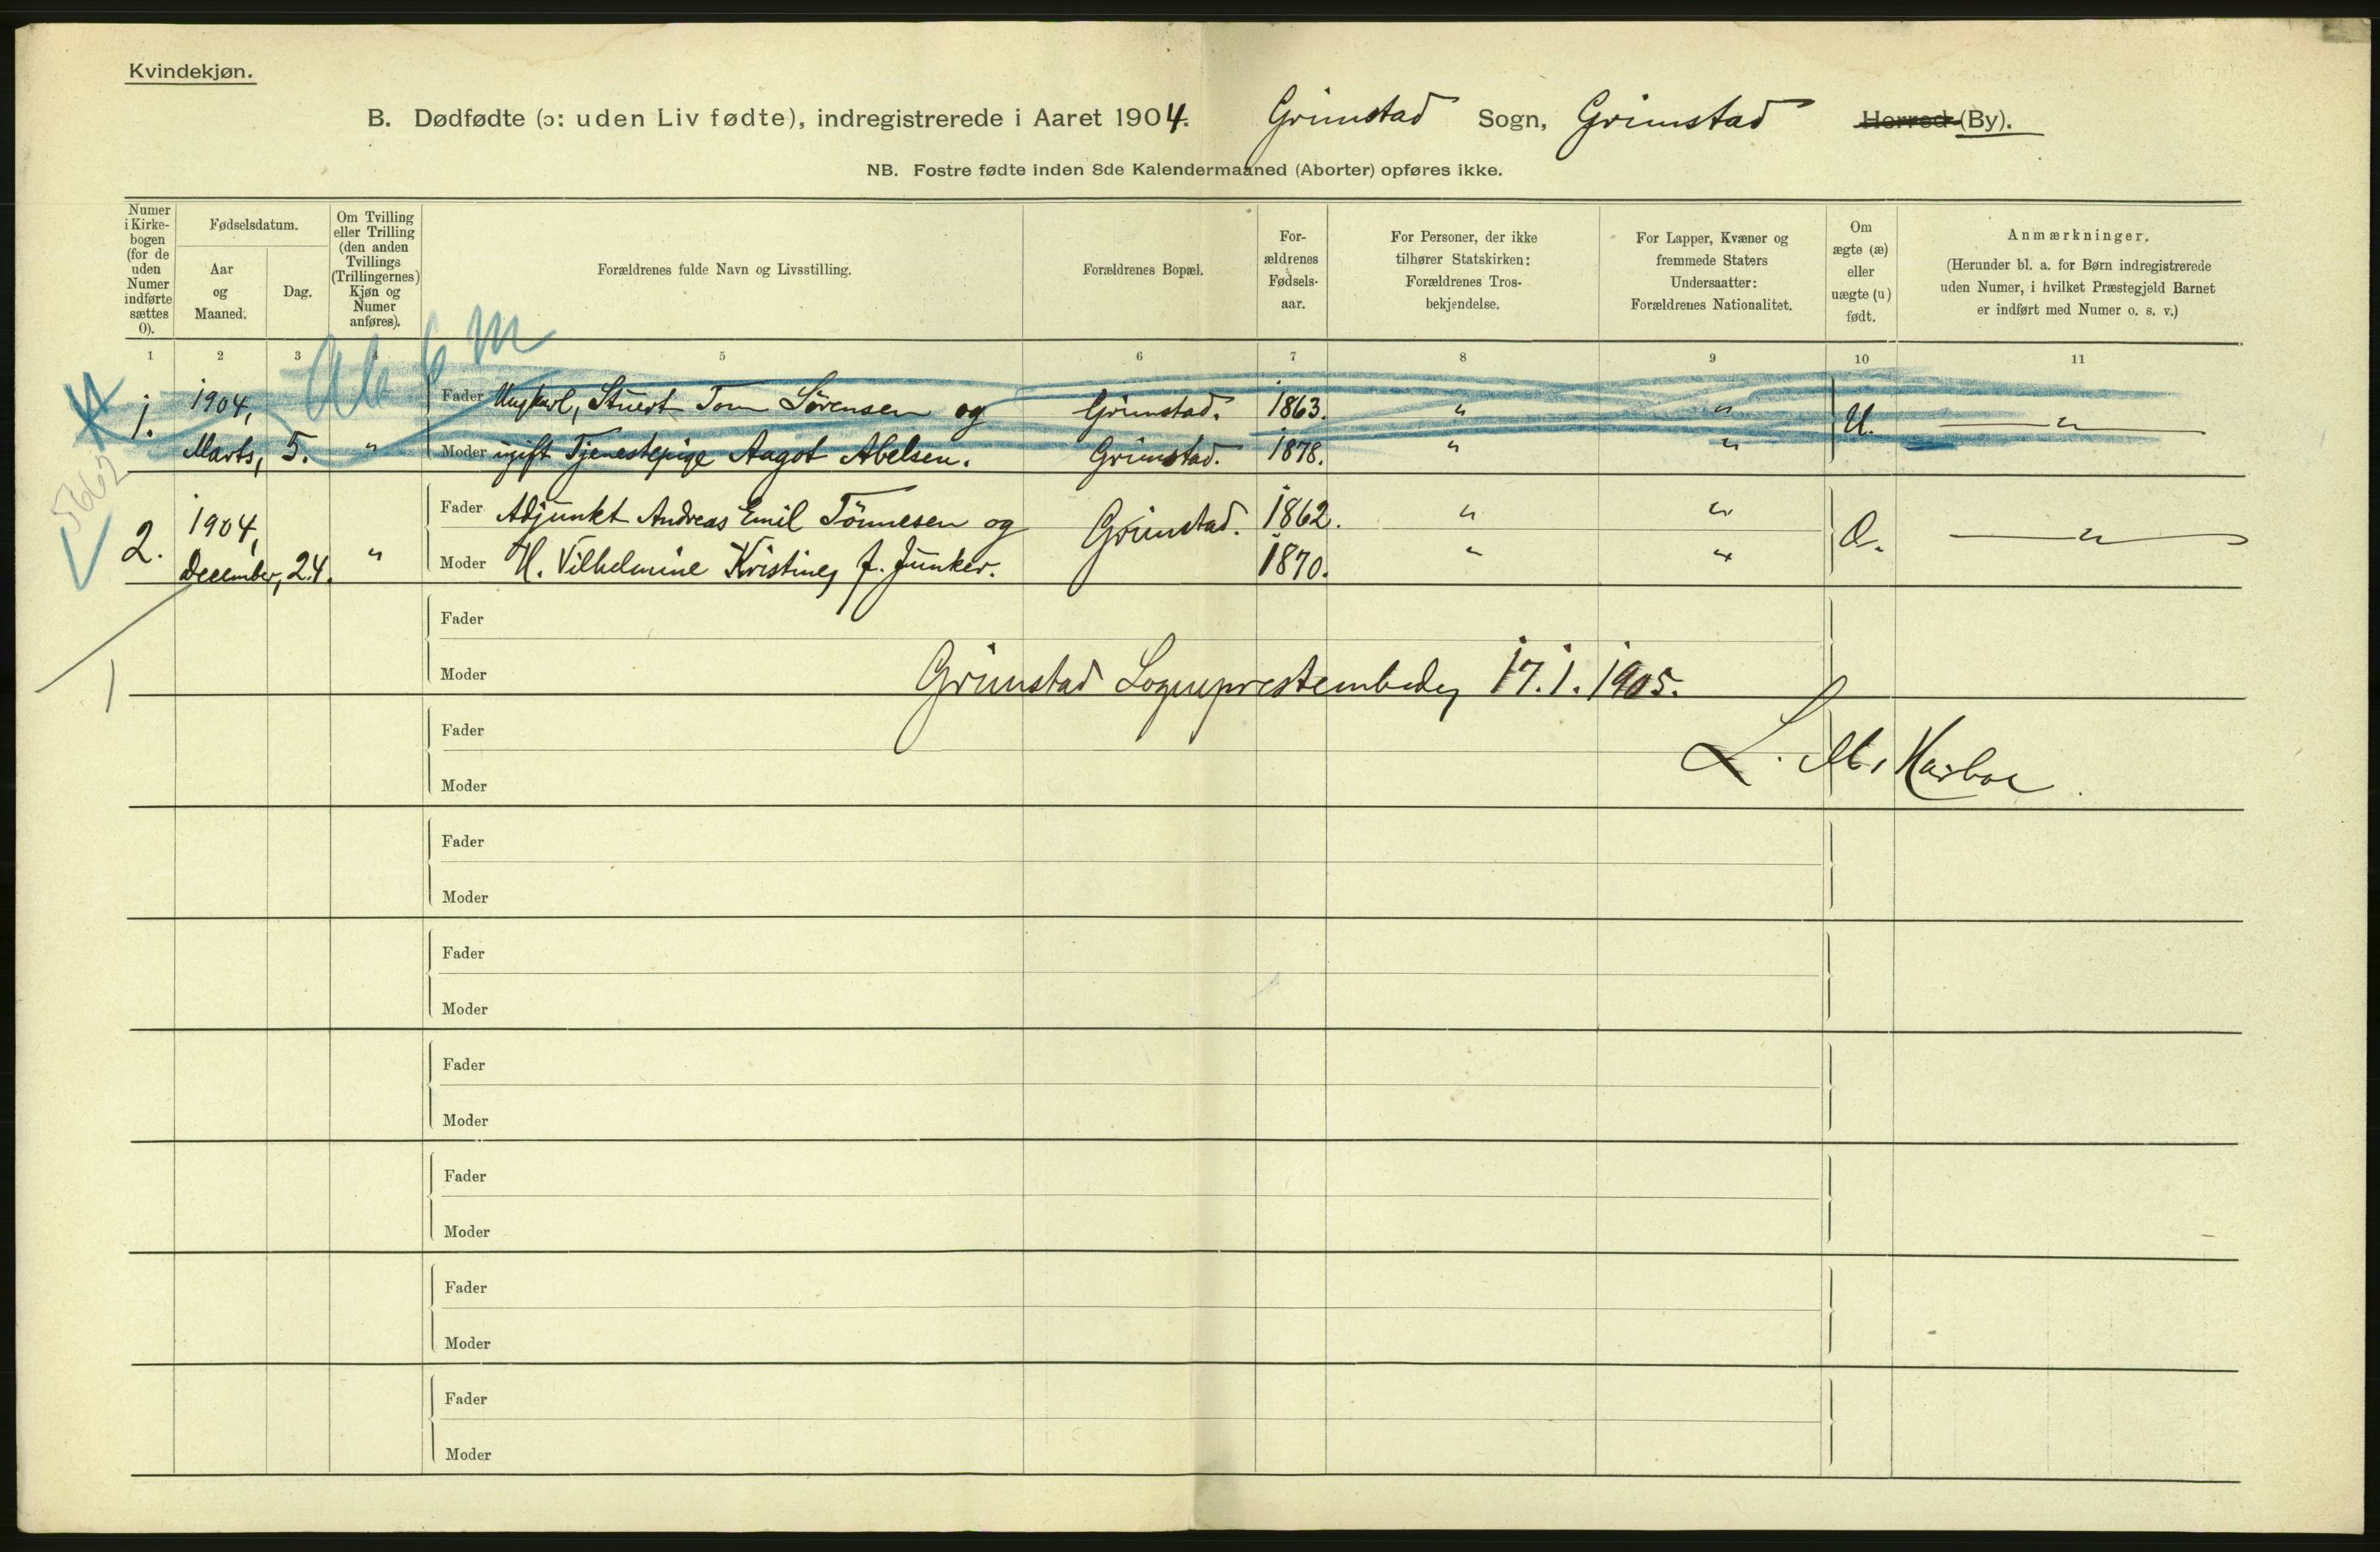 Kvindekjøn.
B. Dødfødte (ɔ: uden Liv fødte), indregistrerede i Aaret 1904. Grimstad Sogn, Grimstad Herred (By).
NB. Fostre fødte inden 8de Kalendermaaned (Aborter) opføres ikke.
Numer i Kirkebogen (for de uden Numer indførte sættes 0).
Fødselsdatum.
Aar og Maaned.
Dag.
Om Tvilling eller Trilling (den anden Tvillings (Trillingernes) Kjøn og Numer anføres).
Forældrenes fulde Navn og Livsstilling.
Forældrenes Bopæl.
Forældrenes Fødselsaar.
For Personer, der ikke tilhører Statskirken: Forældrenes Trosbekjendelse.
For Lapper, Kvæner og fremmede Staters Undersaatter: Forældrenes Nationalitet.
Om ægte (æ) eller uægte (u) født.
Anmærkninger.
(Herunder bl. a. for Børn indregistrerede uden Numer, i hvilket Præstegjeld Barnet er indført med Numer o. s. v.)
1 2 3 4 5 6 7 8 9 10 11
6 m
1. 1904, Fader Ungkarl, Stuert Tom Sörensen og Grimstad. 1863. " " U. "
Marts, 5. " Moder ugift Tjenestepige Aagot Abelsen. Grimstad. 1878. " "
5662
2. 1904, Fader Adjunkt Andreas Emil Tönnesen og Grimstad. 1862. " " "
December, 24. " Moder H. Vilhelmine Kristine, f. Junker. 1870. " "
Fader
Moder
Grimstad Sogneprestembede, 17.1.1905.
Fader
L. M. Harboe
Moder
Fader
Moder
Fader
Moder
Fader
Moder
Fader
Moder
Fader
Moder
Fader
Moder